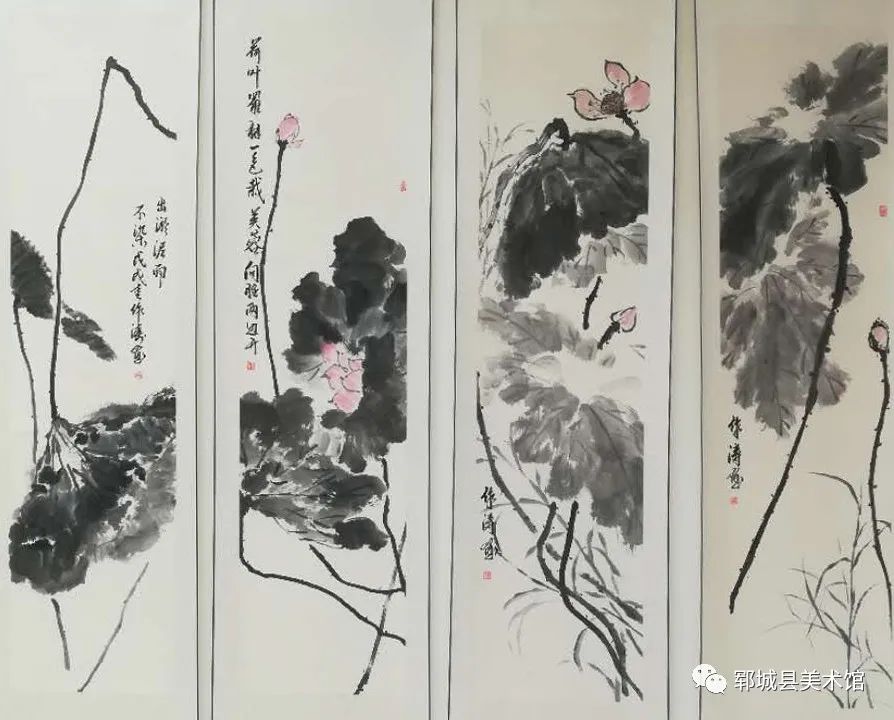 出淤泥而
不染戊戌作涛画
荷叶罗裙一色裁芙蓉向脸两边开
作涛画
作涛画
郓城县美术馆